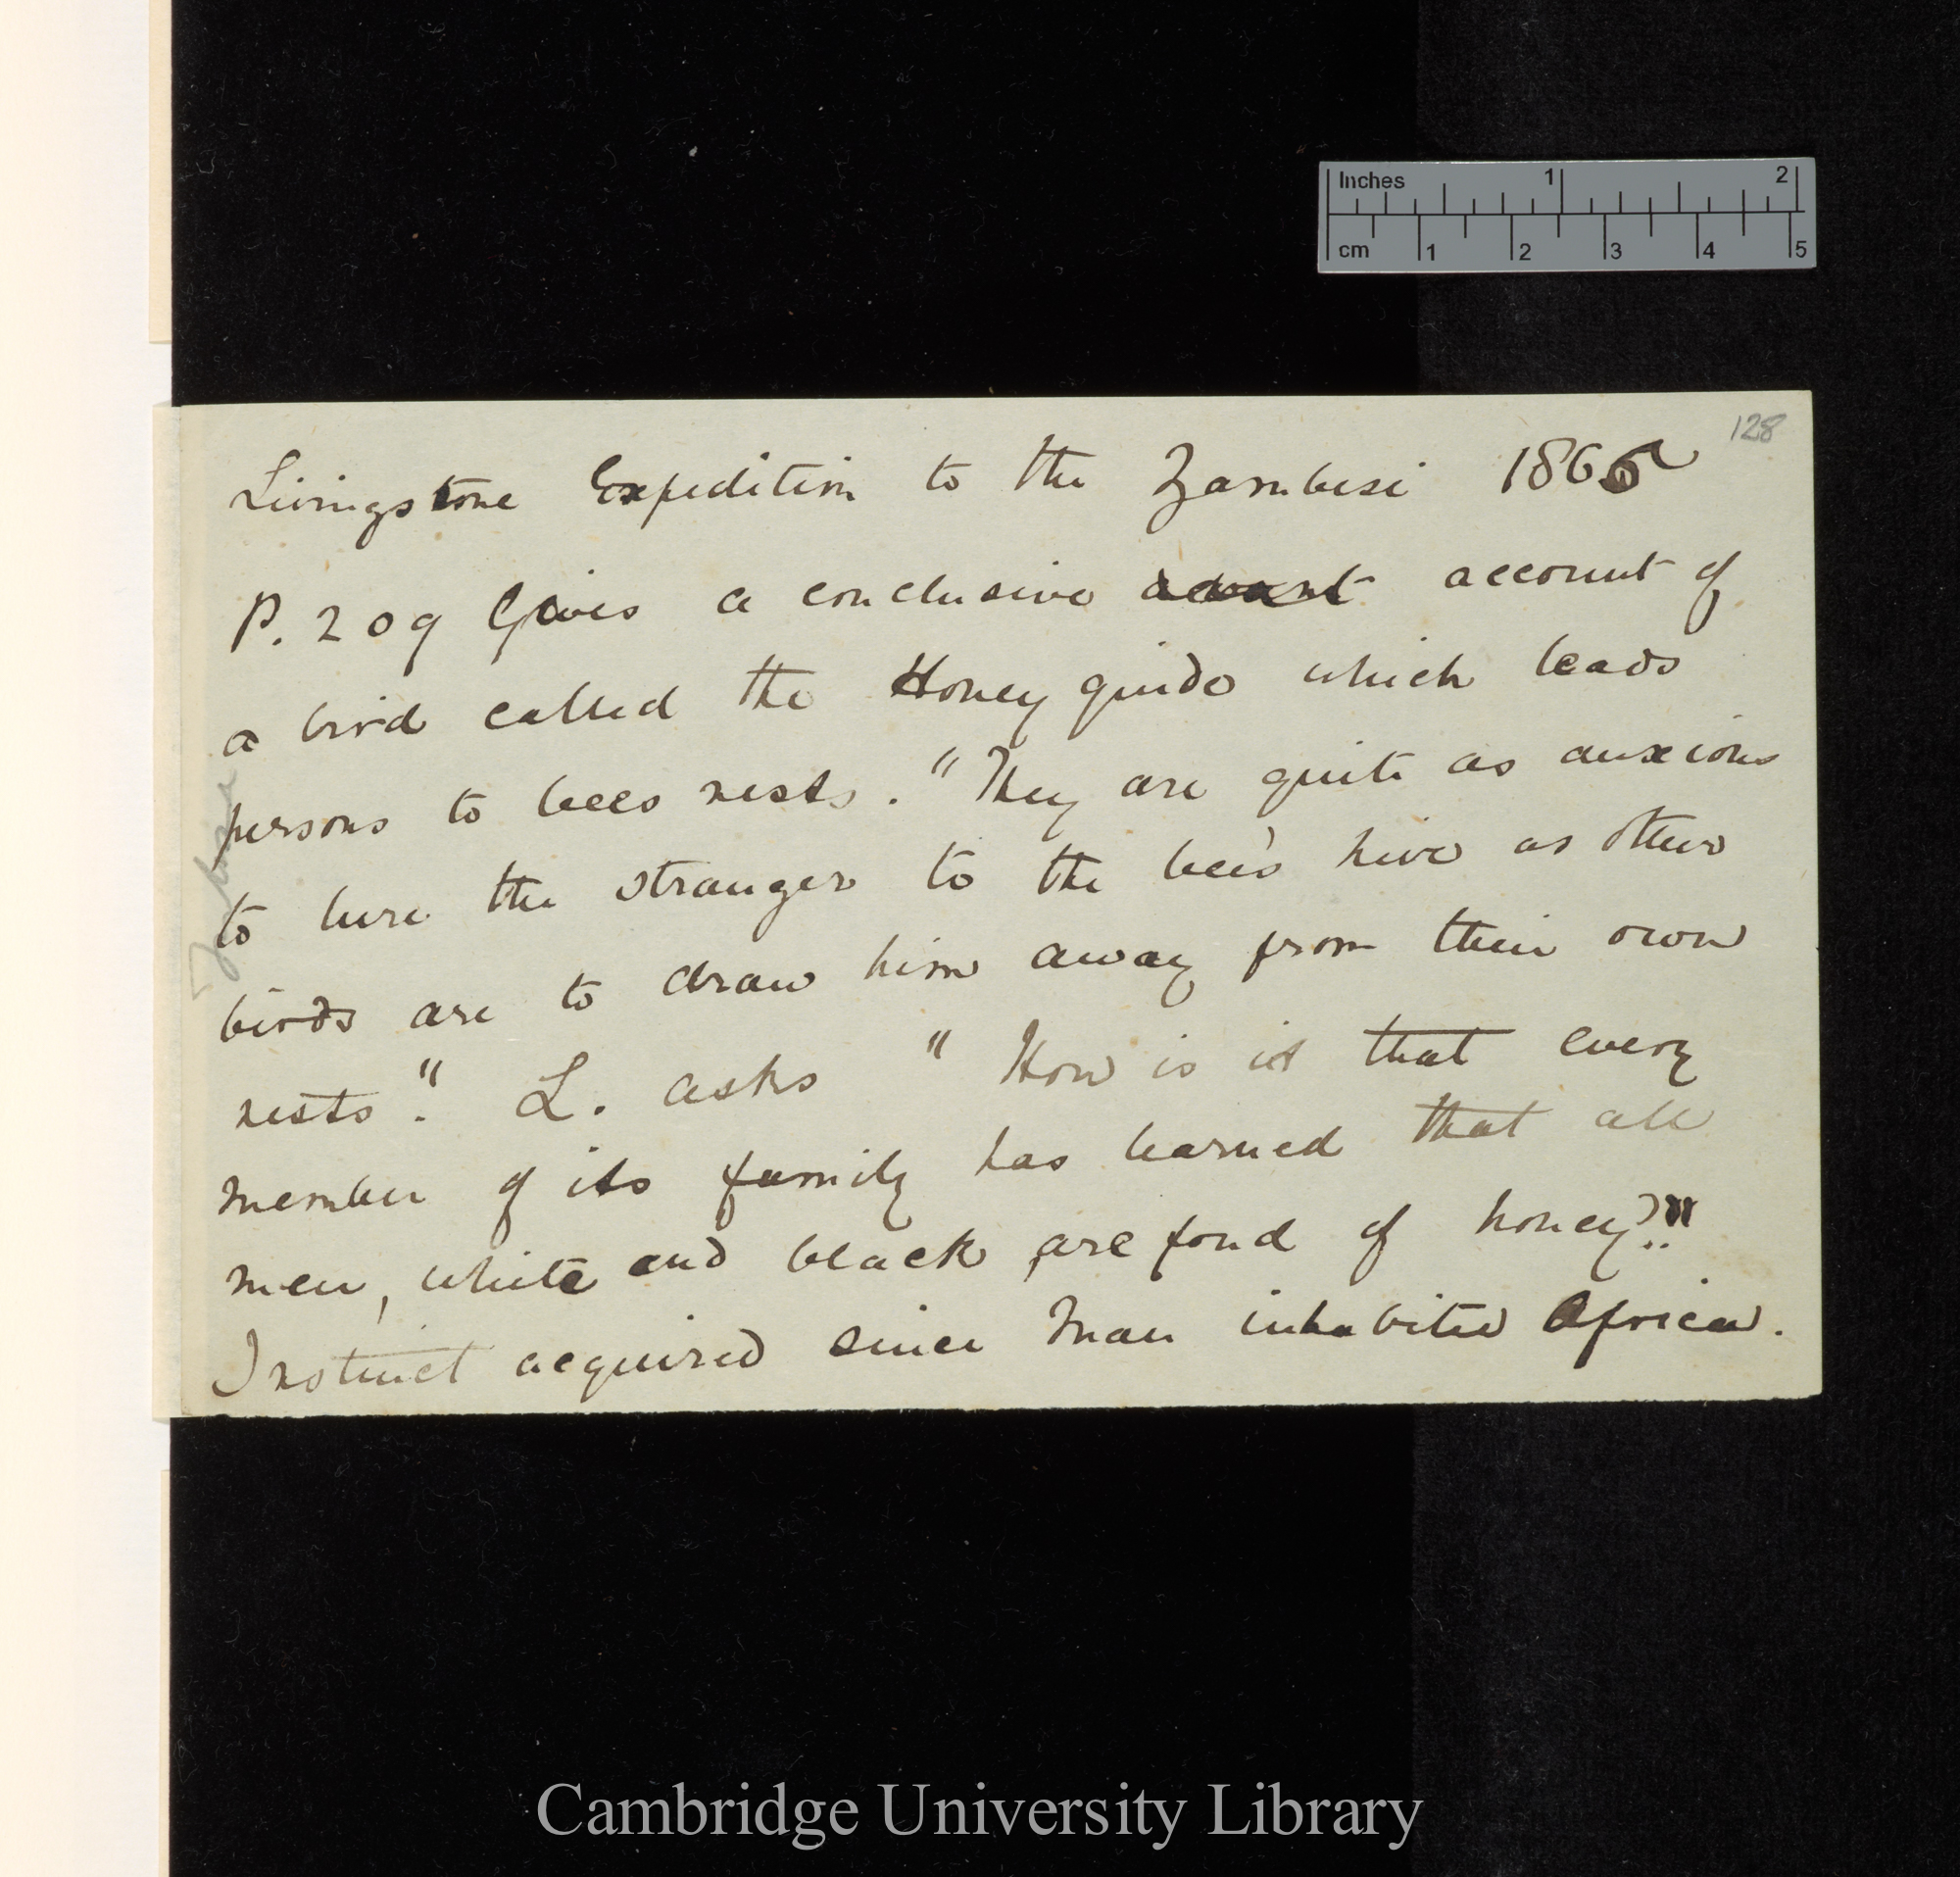 Inches 1 2
cm 1 2 3 4 5
128
Livingstone Expedition to the Zambesi 1865
P. 209 Gives a conclusive account of
a bird called the Honey guide which leads
persons to bees nests. "They are quite as anxious
to lure the stranger to the bee's hive as other
birds are to draw him away from their own
nests." L. asks "How is it that every
member of its family has learned that all
men, white and black, are fond of honey?!!"
Instinct acquired since Man inhabited Africa.
Cambridge University Library